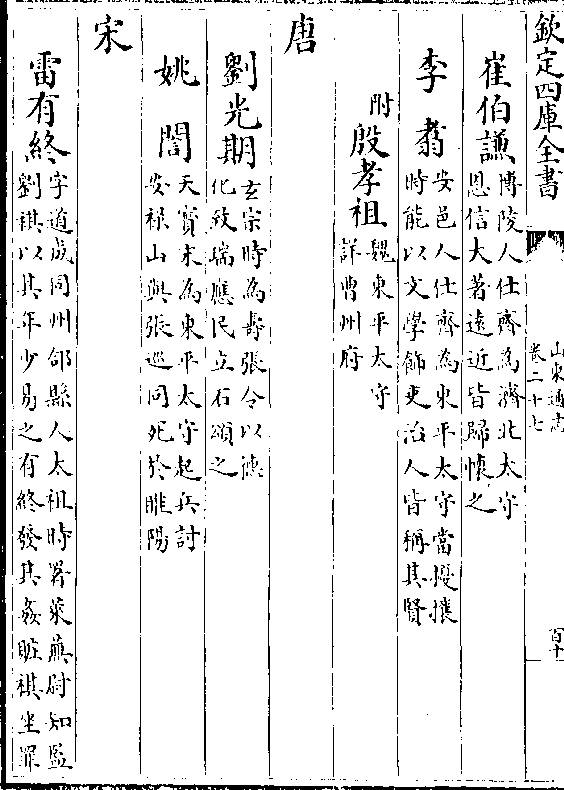 欽定四庫全書
山東通志
卷二十七
百十
崔伯謙
博陵人仕齊為濟北太守
恩信大著遠近皆歸懷之
李翥
安邑人仕齊為東平太守當擾攘
時能以文學飾吏治人皆稱其賢
附
殷孝祖
魏東平太守
詳曹州府
唐
劉光期
玄宗時為壽張令以德
化致瑞應民立石頌之
姚誾
天寶末為東平太守起兵討
安祿山與張巡同死於睢陽
宋
雷有終
字道成同州郃縣人太祖時署萊蕪尉知監
劉祺以其年少易之有終發其姦贓祺坐罪